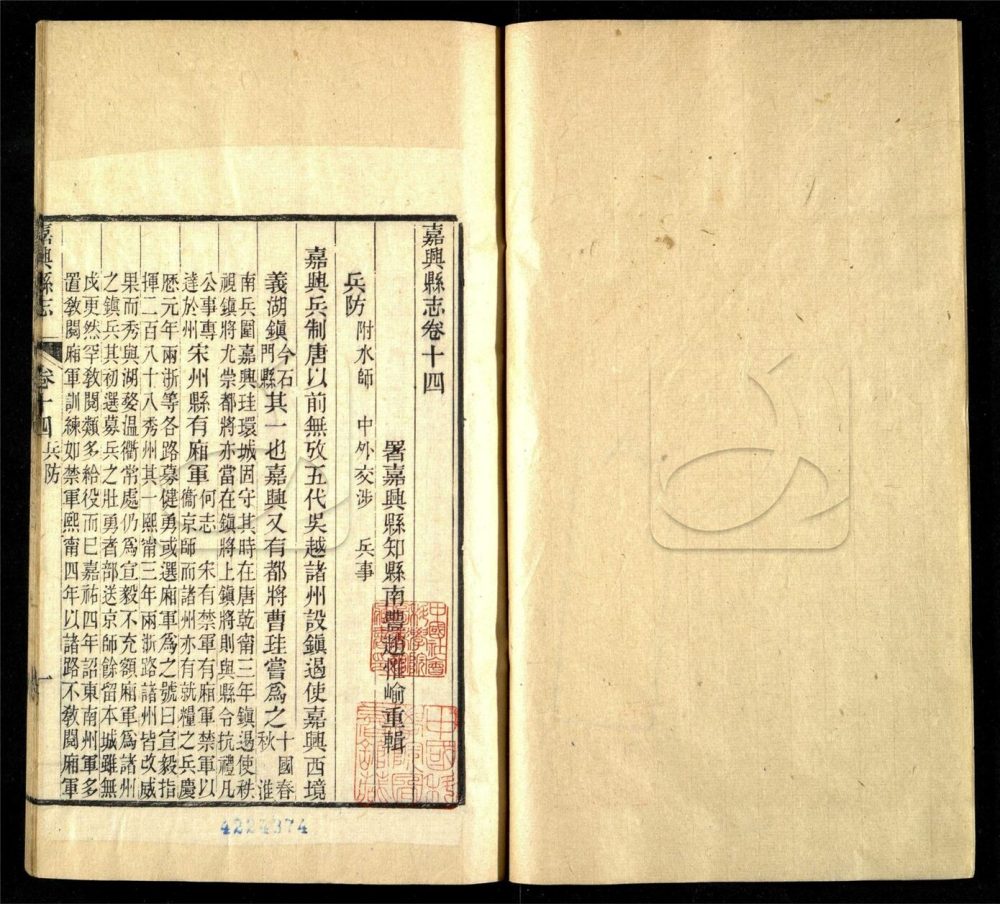 嘉興縣志卷十四
署嘉興縣知縣南豐趙惟崳重輯
兵防 附水師 中外交涉 兵事
嘉興兵制唐以前無攷五代吳越諸州設鎮遏使嘉興西境
義湖鎮今石門縣其一也嘉興又有都將曹珪嘗爲之十國春秋 淮
南兵圍嘉興珪環城固守其時在唐乾甯三年鎮遏使秩
視鎮將尤崇都將亦當在鎮將上鎮將則與縣令抗禮凡
公事專達於州宋州縣有廂軍何志 宋有禁軍有廂軍禁軍以衞京師而諸州亦有就糧之兵慶
厯元年兩浙等各路募健勇或選廂軍爲之號曰宣毅指
揮二百八十八秀州其一熙甯三年兩浙路諸州皆改威
果而秀與湖婺溫衢常處仍爲宣毅不充額廂軍爲諸州
之鎮兵其初選募兵之壯勇者部送京師餘留本城雖無
戍更然罕敎閱類多給役而巳嘉祐四年詔東南州軍多
置敎閱廂軍訓練如禁軍熙甯四年以諸路不敎閱廂軍
嘉興縣志 卷十四 兵防 一
4224374